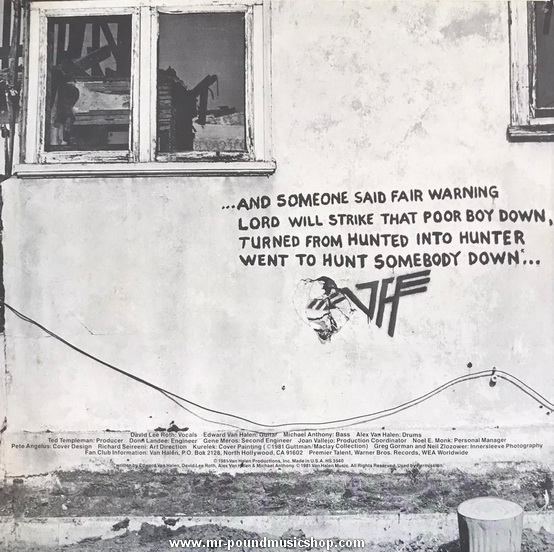 ...AND SOMEONE SAID FAIR WARNING
LORD WILL STRIKE THAT POOR BOY DOWN,
TURNED FROM HUNTED INTO HUNTER
WENT TO HUNT SOMEBODY DOWN...
VH
David Lee Roth: Vocals Edward Van Halen: Guitar Michael Anthony: Bass Alex Van Halen: Drums
Ted Templeman: Producer Donn Landee: Engineer Gene Meros: Second Engineer Joan Vallejo: Production Coordinator Noel E. Monk: Personal Manager
Pete Angelus: Cover Design Richard Seireeni: Art Direction Kurelek: Cover Painting (©1981 Guttman/Maclay Collection) Greg Gorman and Neil Zlozower: Innersleeve Photography
Fan Club Information: Van Halen, P.O. Box 2128, North Hollywood, CA 91602 Premier Talent, Warner Bros. Records, WEA Worldwide
℗ 1981 Van Halen Productions, Inc. Made in U.S.A. HS 3540
written by Edward Van Halen, David Lee Roth, Alex Van Halen & Michael Anthony. © 1981 Van Halen Music. All Rights Reserved. Used by Permission.
www.mr-poundmusicshop.com